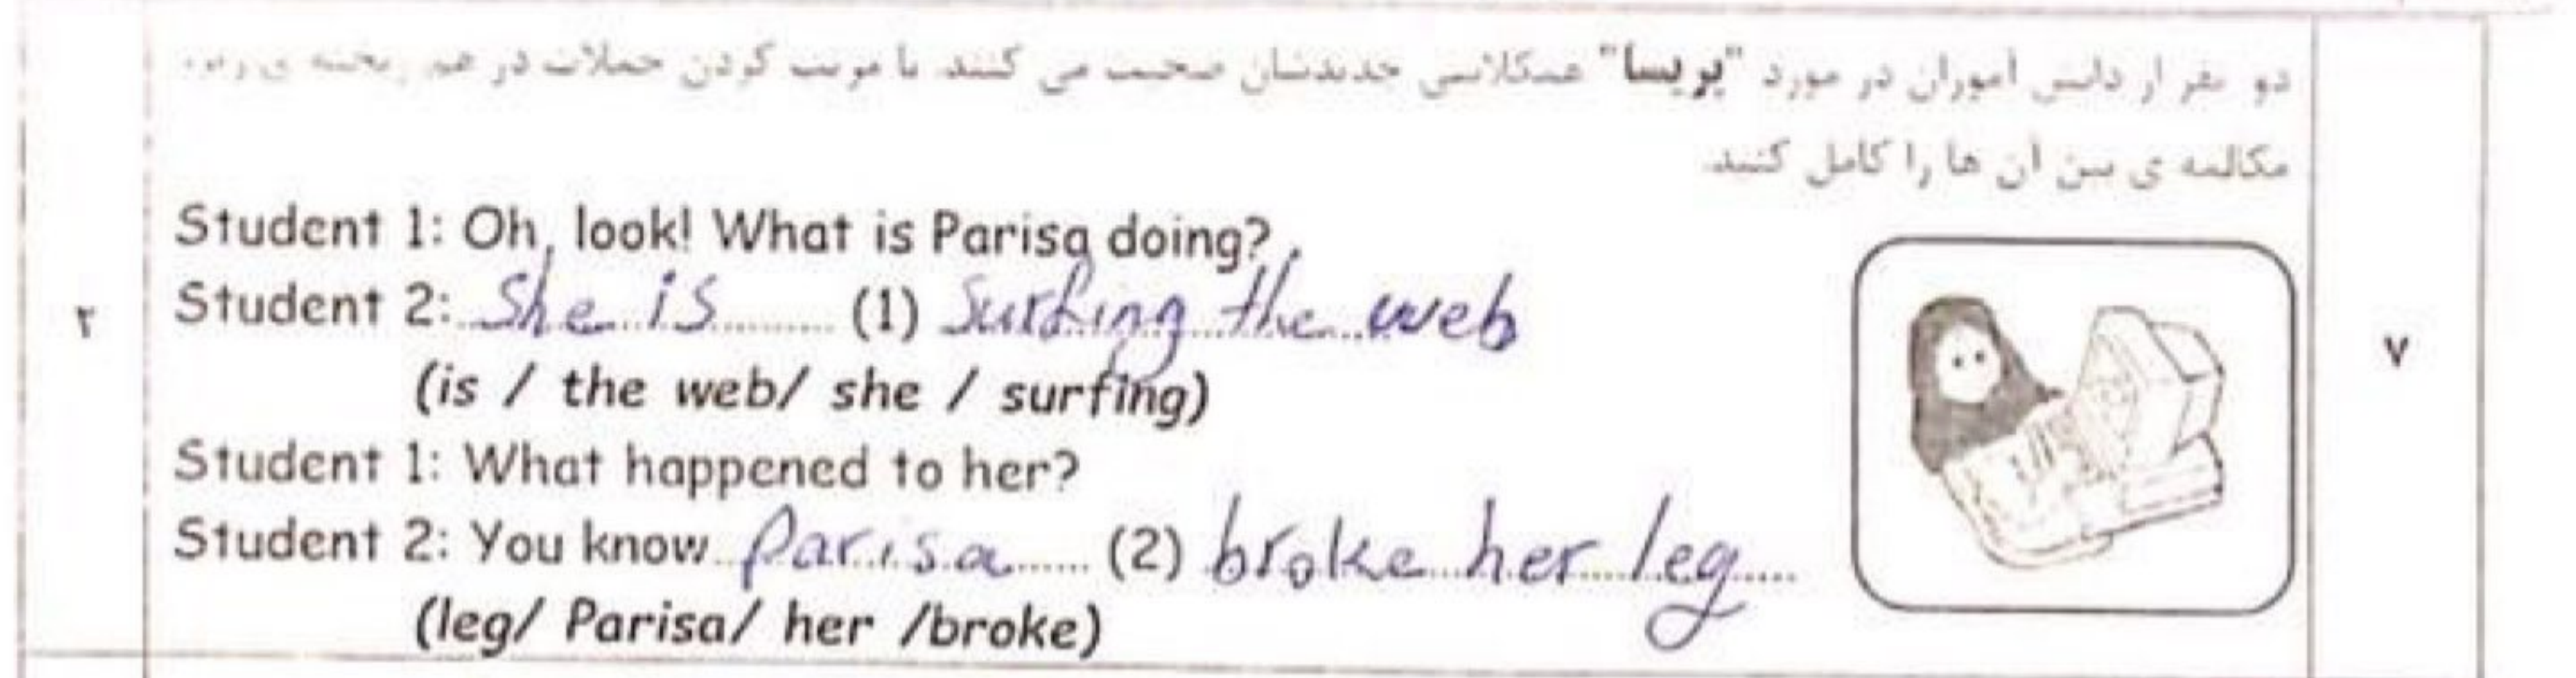 دو نفر از دانش آموزان در مورد "پریسا" همکلاسی جدیدشان صحبت می کنند با مرتب کردن جملات در هم ریخته ی
مکالمه ی بین آن ها را کامل کنید
Student 1: Oh, look! What is Parisa doing?
Student 2: She is (1) Surfing the web
(is / the web/ she / surfing)
Student 1: What happened to her?
Student 2: You know Parisa (2) broke her leg
(leg/ Parisa/ her /broke)
۲
۷